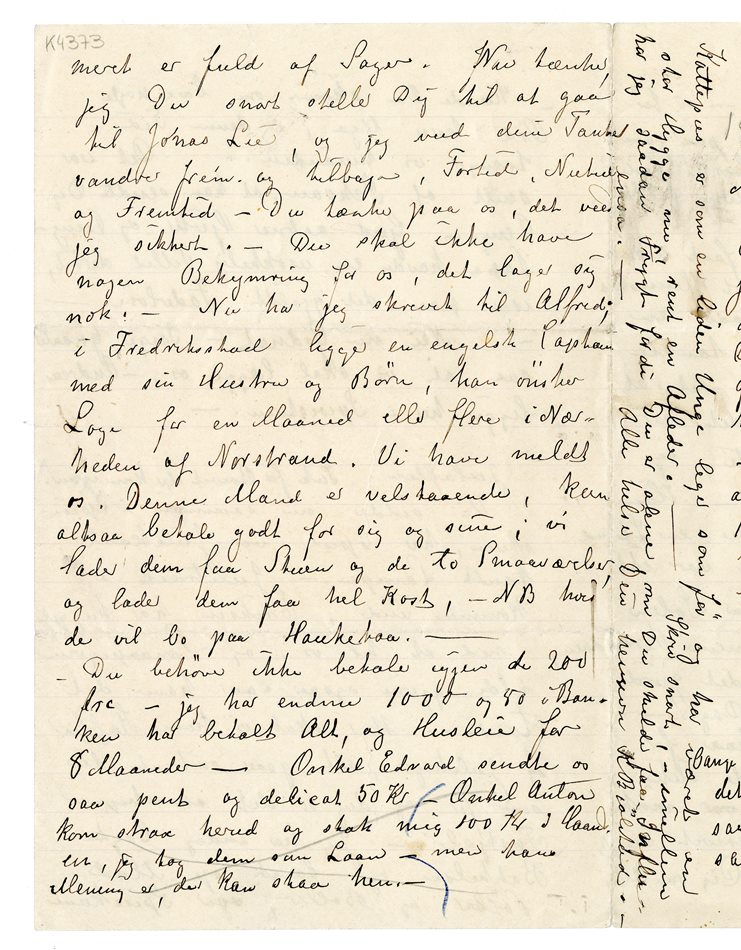 K4373
meret er fuld af Sager. Nu tænker
jeg Du snart stelle Dig til at gaa
til Jonas Lie, og jeg veed dine Tanker
vandrer frem- og tilbage, Fortid, Nutid
og Fremtid – Du tænke paa os, det veed
jeg sikkert. – Du skal ikke have
nogen Bekymring for os, det lager sig
nok. – Nu har jeg skrevet til Alfred;
i Fredriksstad ligge en engelsk Captain
med sin Hustru og Børn, han önsker
Logi for en Maaned eller flere i Nær-
heden af Norstrand. Vi have meldt
os. Denne Mand er velstaaende, kan
altsaa betale godt for sig og sine; vi
lader dem faa Stuen og de to Smaaværelser,
og lader dem faa hel Kost, – NB hvis
de vil bo paa Haukebaa. —
– Du behöve ikke betale igjen de 200
frc – jeg har endnu 1000 og 50 i Ban-
ken har betalt Alt, og Husleie for
8 Maaneder — Onkel Edvard sendte os
saa pent og delicat 50 Kr – Onkel Anton
kom strax herud og stak mig 100 Kr i Haand
en, jeg tog dem som Laan – men hans
Mening er, det kan staa hen. –
Kattepus er som en liden Unge leger som för og har været en
stor Hygge nu, rent en Afleder. — Skriv snart! – imellem
har jeg saadan Frygt fordi Du er alene, om Du skulde faa Influ-
ensa. — Alle hilse Din hengiven K Bjölstad. –